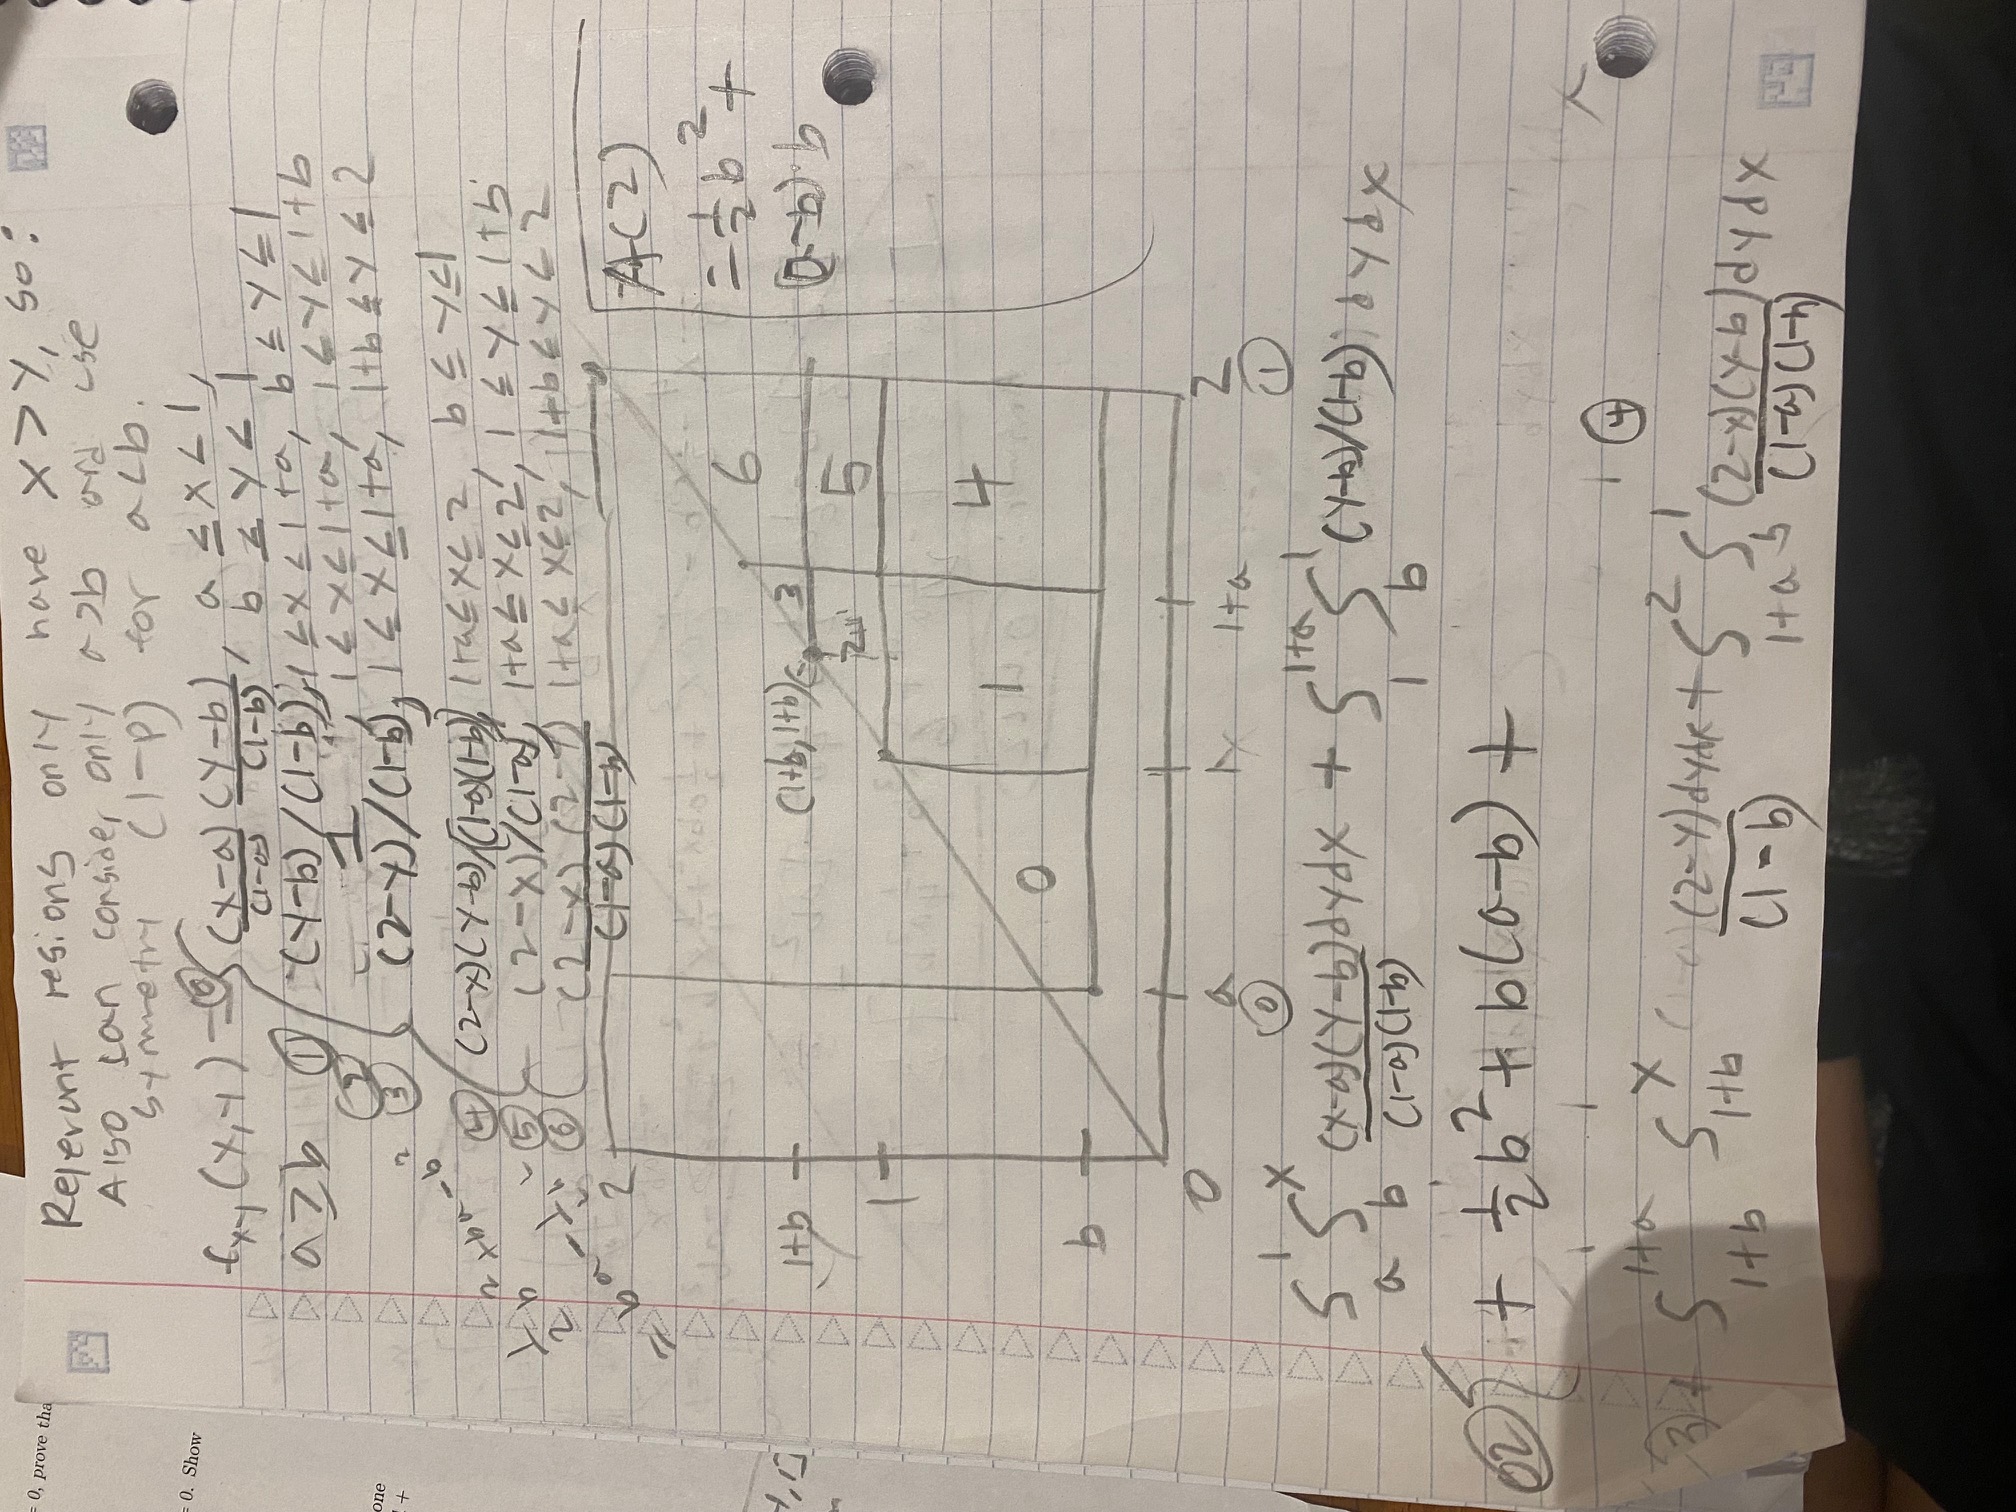 = 0, prove tha
= 0. Show
one
Relevant regions only have x > y, so:
Also can consider only a>b and use
symmetry (1-p) for a<b.
f_{x,y}(x,y) = ⓪ { (x-a)/(1-a) (y-b)/(1-b), a ≤ x < 1, b ≤ y < 1
a ≥ b ① (y-b)/(1-b), 1 ≤ x ≤ 1+a, b ≤ y ≤ 1
② 1, 1 ≤ x ≤ 1+a, 1 ≤ y ≤ 1+b
③ (2-y)/(1-b), 1 ≤ x ≤ 1+a, 1+b ≤ y ≤ 2
④ (2-x)(y-b)/[(1-a)(1-b)], 1+a ≤ x ≤ 2, b ≤ y ≤ 1
⑤ (2-x)/(1-a), 1+a ≤ x ≤ 2, 1 ≤ y ≤ 1+b
⑥ (2-x)(2-y)/(1-a)(1-b) 1+a ≤ x ≤ 2, 1+b ≤ y ≤ 2
1/2 b² + ba - b²
= ba - 1/2 b²
2
A(2)
= 1/2 b² +
(a-b)·b
6
1+b
(1+b, 1+b)
3
2
5
1
4
1
0
b
0
a
1
1+a
2
⓪ ①
∫_a^1 ∫_b^x (x-a)(y-b)dydx/(1-a)(1-b) + ∫_1^{1+a} ∫_b^1 (y-b)/(1-b) dydx
② { + 1/2 b² + b(a-b) +
④
③ + ∫_{1+b}^{1+a} ∫_{1+b}^x (2-y)dydx/(1-b) + ∫_{1+a}^2 ∫_b^1 (2-x)(y-b)dydx/(1-a)(1-b)